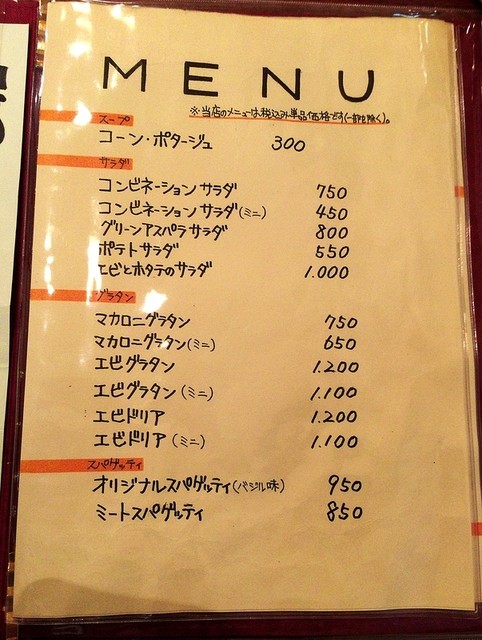 MENU
※当店のメニューは税込み単品価格です(一部を除く)。
スープ
コーン・ポタージュ 300
サラダ
コンビネーションサラダ 750
コンビネーションサラダ(ミニ) 450
グリーンアスパラサラダ 800
ポテトサラダ 550
エビとホタテのサラダ 1.000
グラタン
マカロニグラタン 750
マカロニグラタン(ミニ) 650
エビグラタン 1.200
エビグラタン(ミニ) 1.100
エビドリア 1.200
エビドリア(ミニ) 1.100
スパゲッティ
オリジナルスパゲッティ(バジル味) 950
ミートスパゲッティ 850